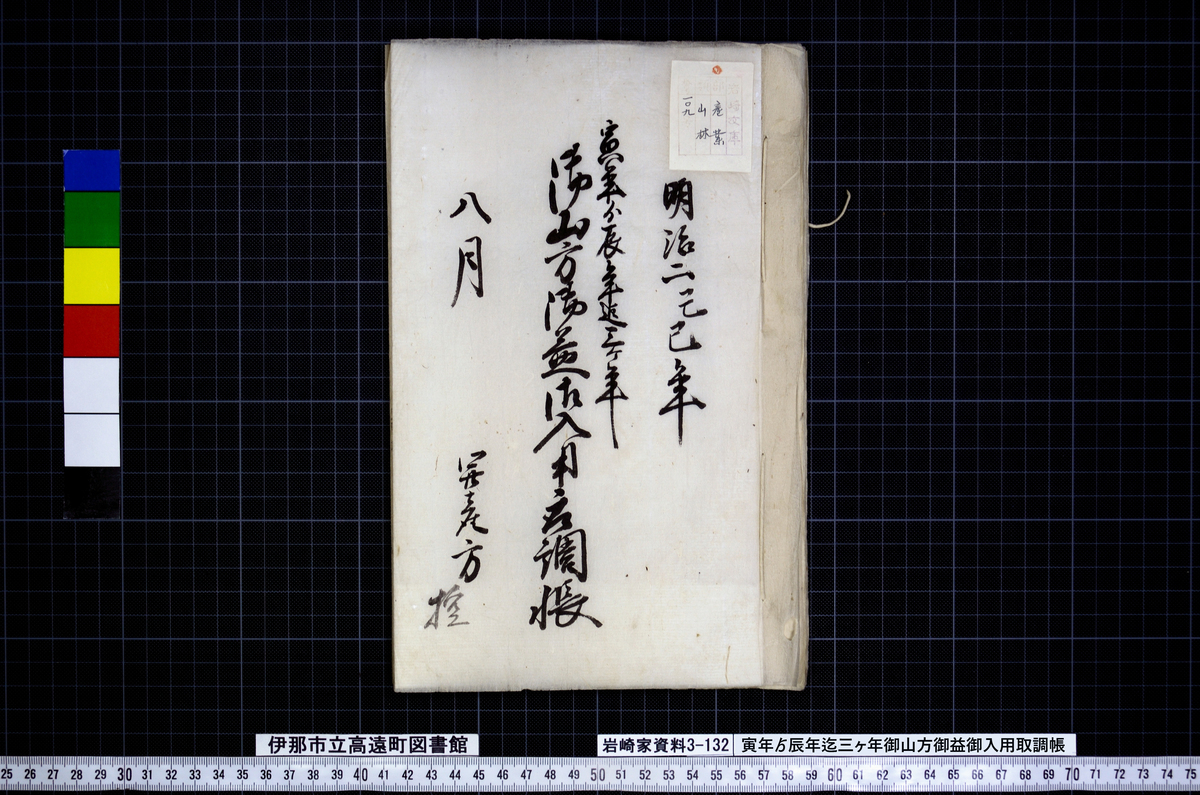 産業
山林
一〇九
明治二己巳年
寅年ゟ辰年迄三ヶ年
御山方御益御入用取調帳
八月
産方
控
伊那市立高遠町図書館
岩崎家資料3-132
寅年ゟ辰年迄三ヶ年御山方御益御入用取調帳
25 26 27 28 29 30 31 32 33 34 35 36 37 38 39 40 41 42 43 44 45 46 47 48 49 50 51 52 53 54 55 56 57 58 59 60 61 62 63 64 65 66 67 68 69 70 71 72 73 74 75